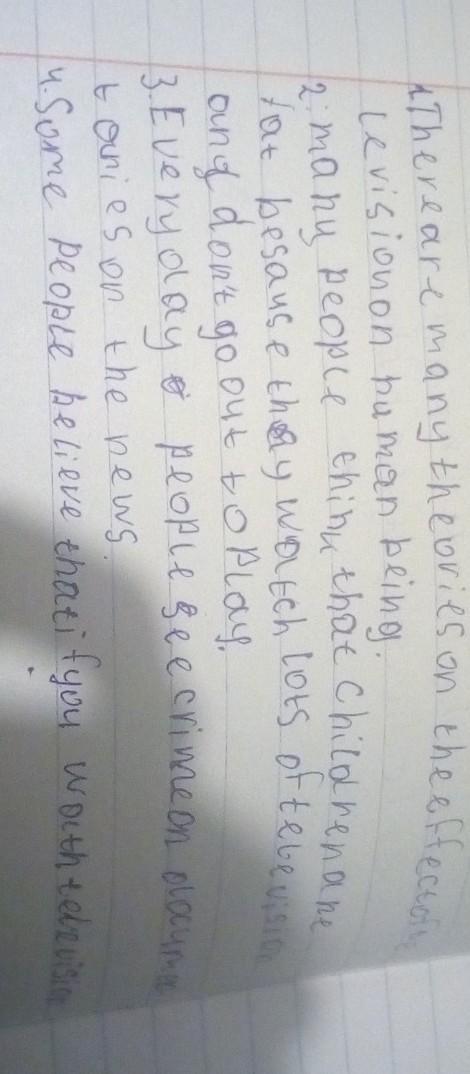 1. There are many theories on the effect of te
levision on human being.
2. many people think that children are
fat besause they watch lots of television
and don't go out to play.
3. Every day people see crime on
tories on the news.
4. Some people believe that if you watch television